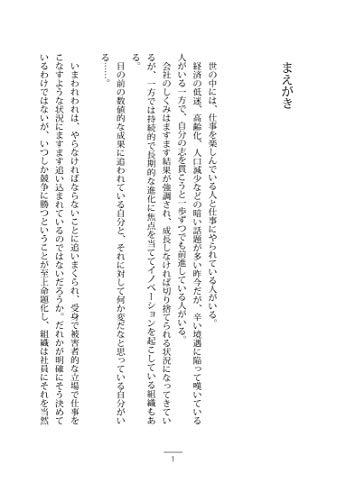 まえがき
世の中には、仕事を楽しんでいる人と仕事にやられている人がいる。
経済の低迷、高齢化、人口減少などの暗い話題が多い昨今だが、辛い境遇に陥って嘆いている
人がいる一方で、自分の志を貫こうと一歩ずつでも前進している人がいる。
会社のしくみはますます結果が強調され、成長しなければ切り捨てられる状況になってきてい
るが、一方では持続的で長期的な進化に焦点を当ててイノベーションを起こしている組織もあ
る。
目の前の数値的な成果に追われている自分と、それに対して何か変だなと思っている自分がい
る……。
いまわれわれは、やらなければならないことに追いまくられ、受身で被害者的な立場で仕事を
こなすような状況にますます追い込まれているのではないだろうか。だれかが明確にそう決めて
いるわけではないが、いつしか競争に勝つということが至上命題化し、組織は社員にそれを当然
1